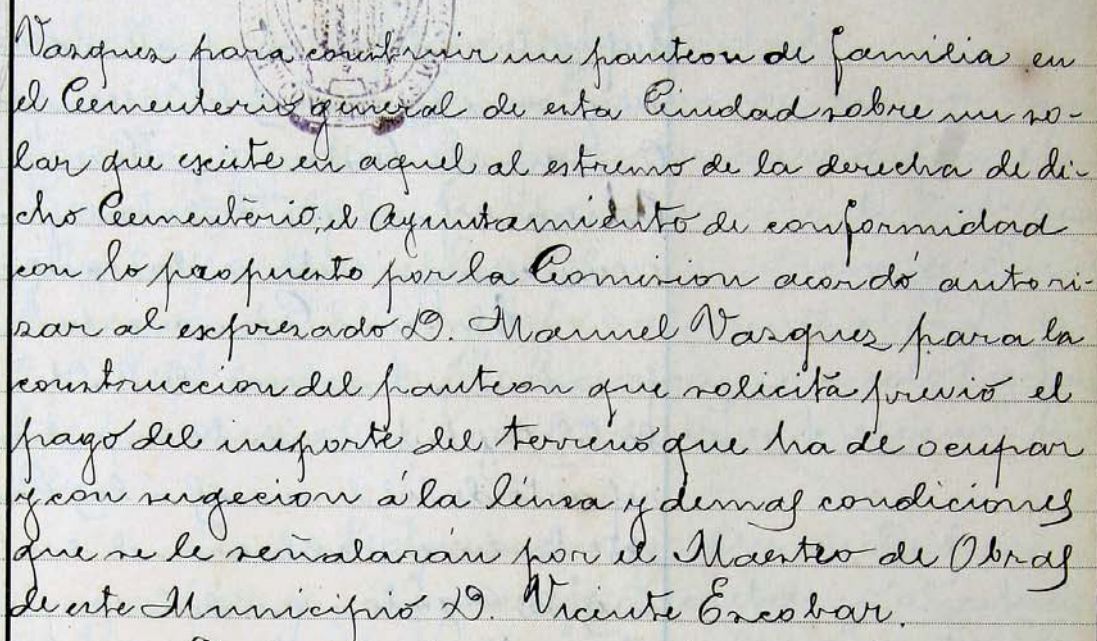 Vasquez para construir un panteon de familia en
el Cementerio general de esta Ciudad sobre un so-
lar que existe en aquel al estremo de la derecha de di-
cho Cementerio, el Ayuntamiento de conformidad
con lo propuesto por la Comision acordó autori-
zar al expresado D. Manuel Vasquez para la
construccion del panteon que solicita previo el
pago del importe del terreno que ha de ocupar
y con sugecion á la linea y demas condiciones
que se le señalarán por el Maestro de Obras
de este Municipio D. Vicente Escobar.